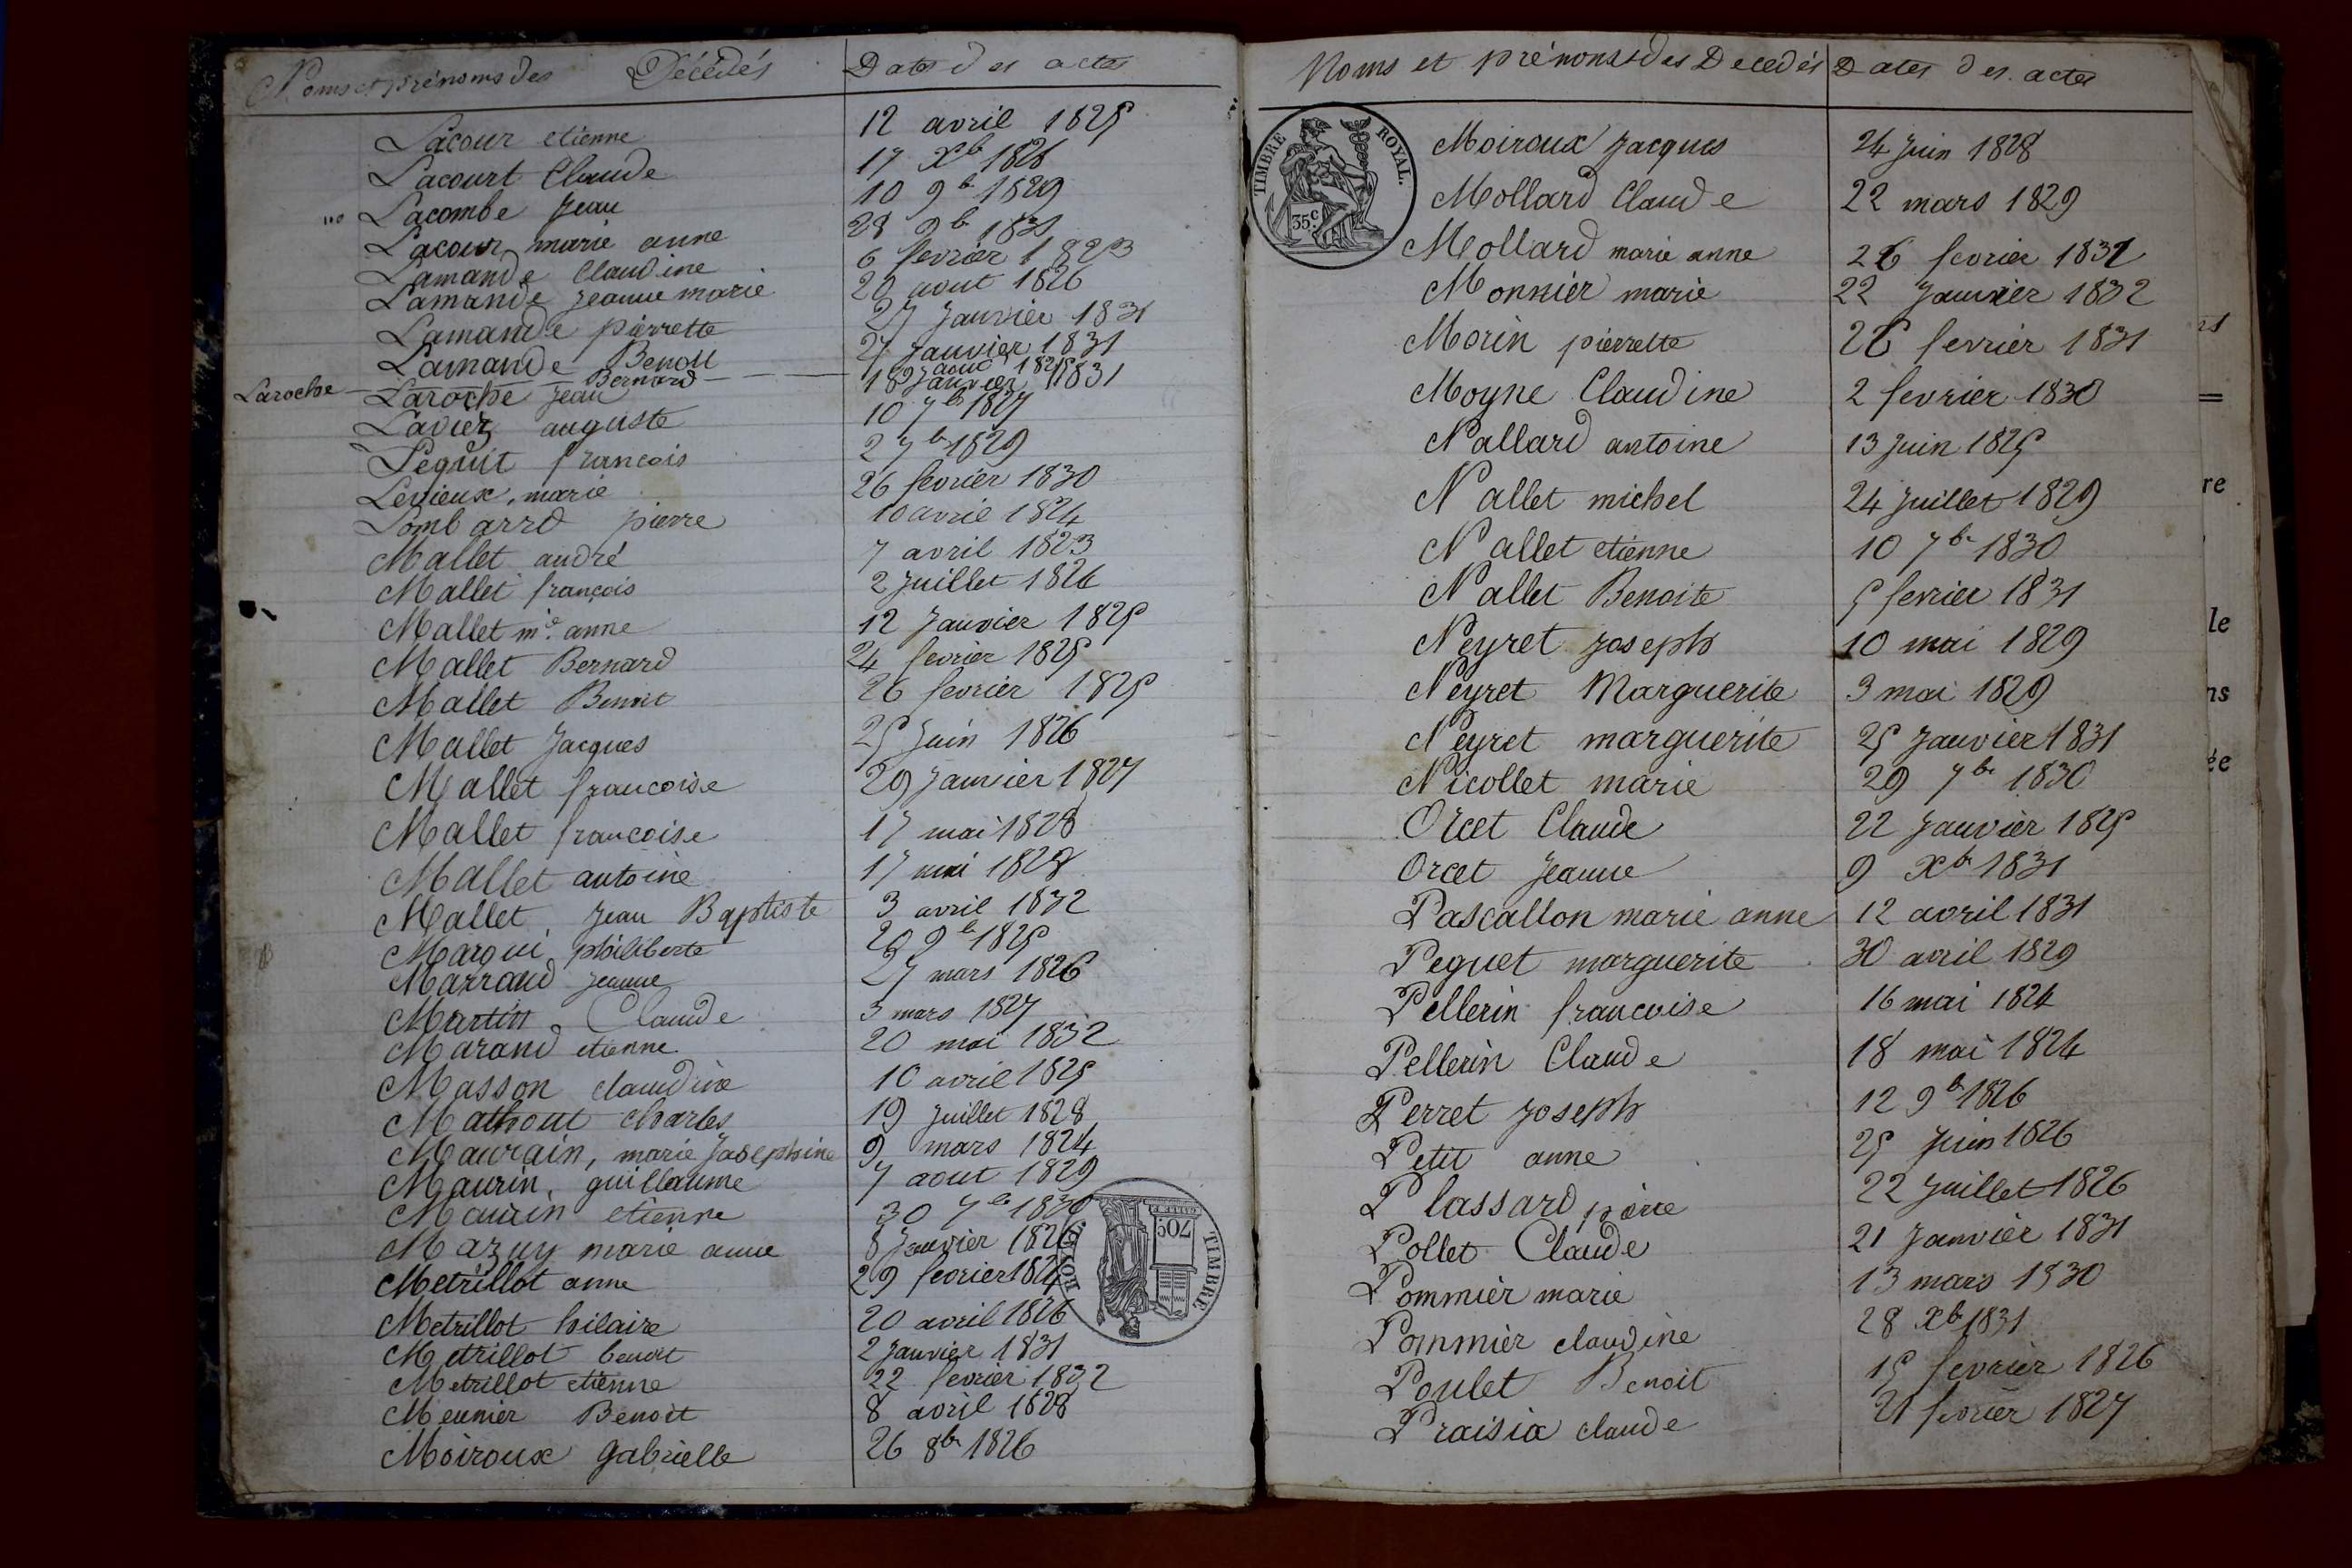 Noms et prénoms des Décédés Dates des actes
Lacour etienne 12 avril 1825
Lacourt Claude 17 Xb 1826
Lacombe Jean 10 9b 1829
Lacour marie anne 28 9b 1831
Lamande Claudine 6 fevrier 1823
Lamande Jeanne marie 20 aout 1826
Lamande pierrette 27 Janvier 1831
Lamande Benoit 27 Janvier 1831
Laroche Bernard aout 1825
Laroche Jean 18 Janvier 1831
Lavier auguste 10 7b 1827
Lequit francois 2 7b 1829
Levieux, marie 26 fevrier 1830
Lombarrd pierre 10 avril 1824
Mallet andré 7 avril 1823
Mallet françois 2 Juillet 1824
Mallet mie anne 12 Janvier 1825
Mallet Bernard 24 fevrier 1825
Mallet Benoit 26 fevrier 1825
Mallet Jacques 25 Juin 1826
Mallet francoise 29 Janvier 1827
Mallet francoise 17 mai 1828
Mallet antoine 17 mai 1828
Mallet Jean Baptiste 3 avril 1832
Marqui philiberte 29 9b 1825
Marraud Jeanne 27 mars 1826
Martin Claude 3 mars 1827
Marand etienne 20 mai 1832
Masson claudine 10 avril 1825
Mathout charles 19 Juillet 1828
Maurain, marie Josephine 9 mars 1824
Maurin, guillaume 7 aout 1829
Maurin etienne 30 7b 1830
Mazuy marie anne 8 Janvier 1826
Metrillot anne 29 fevrier 1824
Metrillot hilaire 20 avril 1826
Metrillot benoit 2 Janvier 1831
Metrillot etienne 22 fevrier 1832
Meunier Benoit 8 avril 1828
Moiroux gabrielle 26 8b 1826
TIMBRE ROYAL
70c
Noms et prénoms des Decedés Dates des actes
TIMBRE ROYAL.
35c
Moiroux Jacques 24 Juin 1828
Mollard Claude 22 mars 1829
Mollard marie anne 26 fevrier 1831
Monnier marie 22 Janvier 1832
Morin pierrette 26 fevrier 1831
Moyne Claudine 2 fevrier 1830
Nallard antoine 13 Juin 1825
Nallet michel 24 Juillet 1829
Nallet etienne 10 7b 1830
Nallet Benoite 5 fevrier 1831
Neyret Joseph 10 mai 1829
Neyret Marguerite 3 mai 1829
Neyret marguerite 25 Janvier 1831
Nicollet marie 29 7b 1830
Orcet Claude 22 Janvier 1825
Orcet Jeanne 9 Xb 1831
Pascallon marie anne 12 avril 1831
Peguet marguerite 30 avril 1829
Pellerin francoise 16 mai 1824
Pellerin Claude 18 mai 1824
Perret Joseph 12 9b 1826
Petit anne 25 Juin 1826
Plassard pierre 22 Juillet 1826
Pollet Claude 21 Janvier 1831
Pommier marie 13 mars 1830
Pommier claudine 28 Xb 1831
Poulet Benoit 15 fevrier 1826
Praisia claude 21 fevrier 1827
re
le
ns